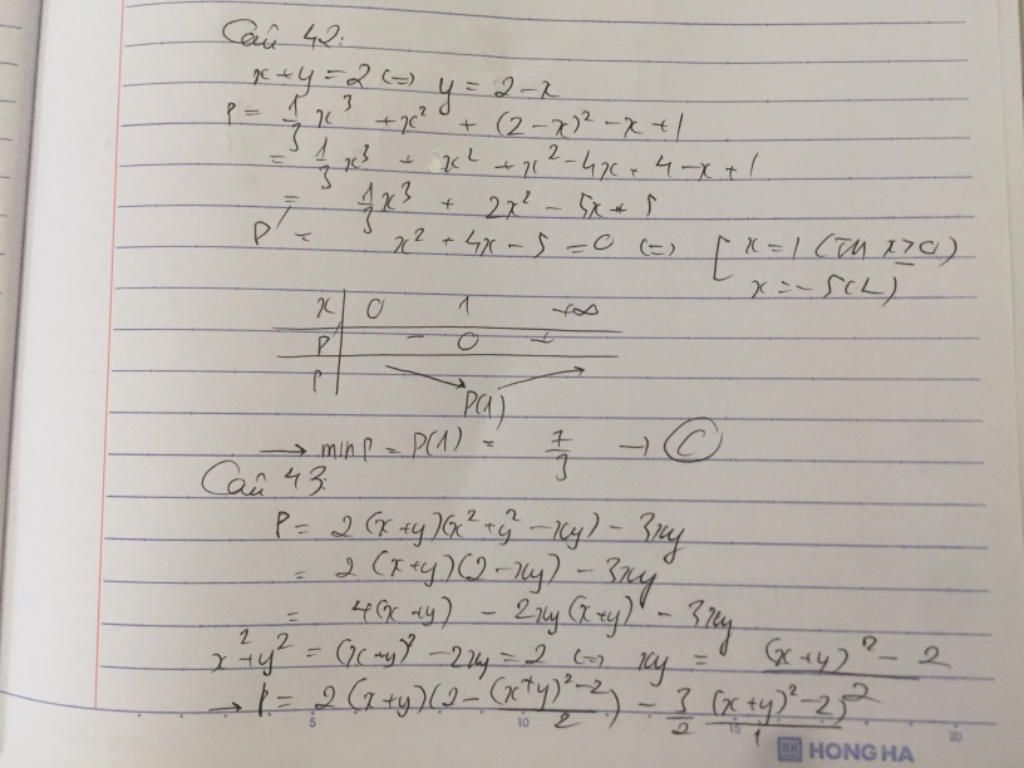 Câu 42:
x + y = 2 (=) y = 2 - x
P = 1/3 x³ + x² + (2 - x)² - x + 1
= 1/3 x³ + x² + x² - 4x + 4 - x + 1
= 1/3 x³ + 2x² - 5x + 5
P' = x² + 4x - 5 = 0 (=) [ x = 1 (TM x ≥ 0)
x = -5 (L)
x | 0 1 +∞
P' | - 0 +
P | P(1)
→ min P = P(1) = 7/3 → C
Câu 43:
P = 2(x+y)(x² + y² - xy) - 3xy
= 2(x+y)(2 - xy) - 3xy
= 4(x+y) - 2xy(x+y) - 3xy
x² + y² = (x+y)² - 2xy = 2 (=) xy = (x+y)² - 2 / 2
→ P = 2(x+y)(2 - (x+y)² - 2 / 2) - 3/2 (x+y)² - 2) / 1
5 10 15 20
HH HONG HA